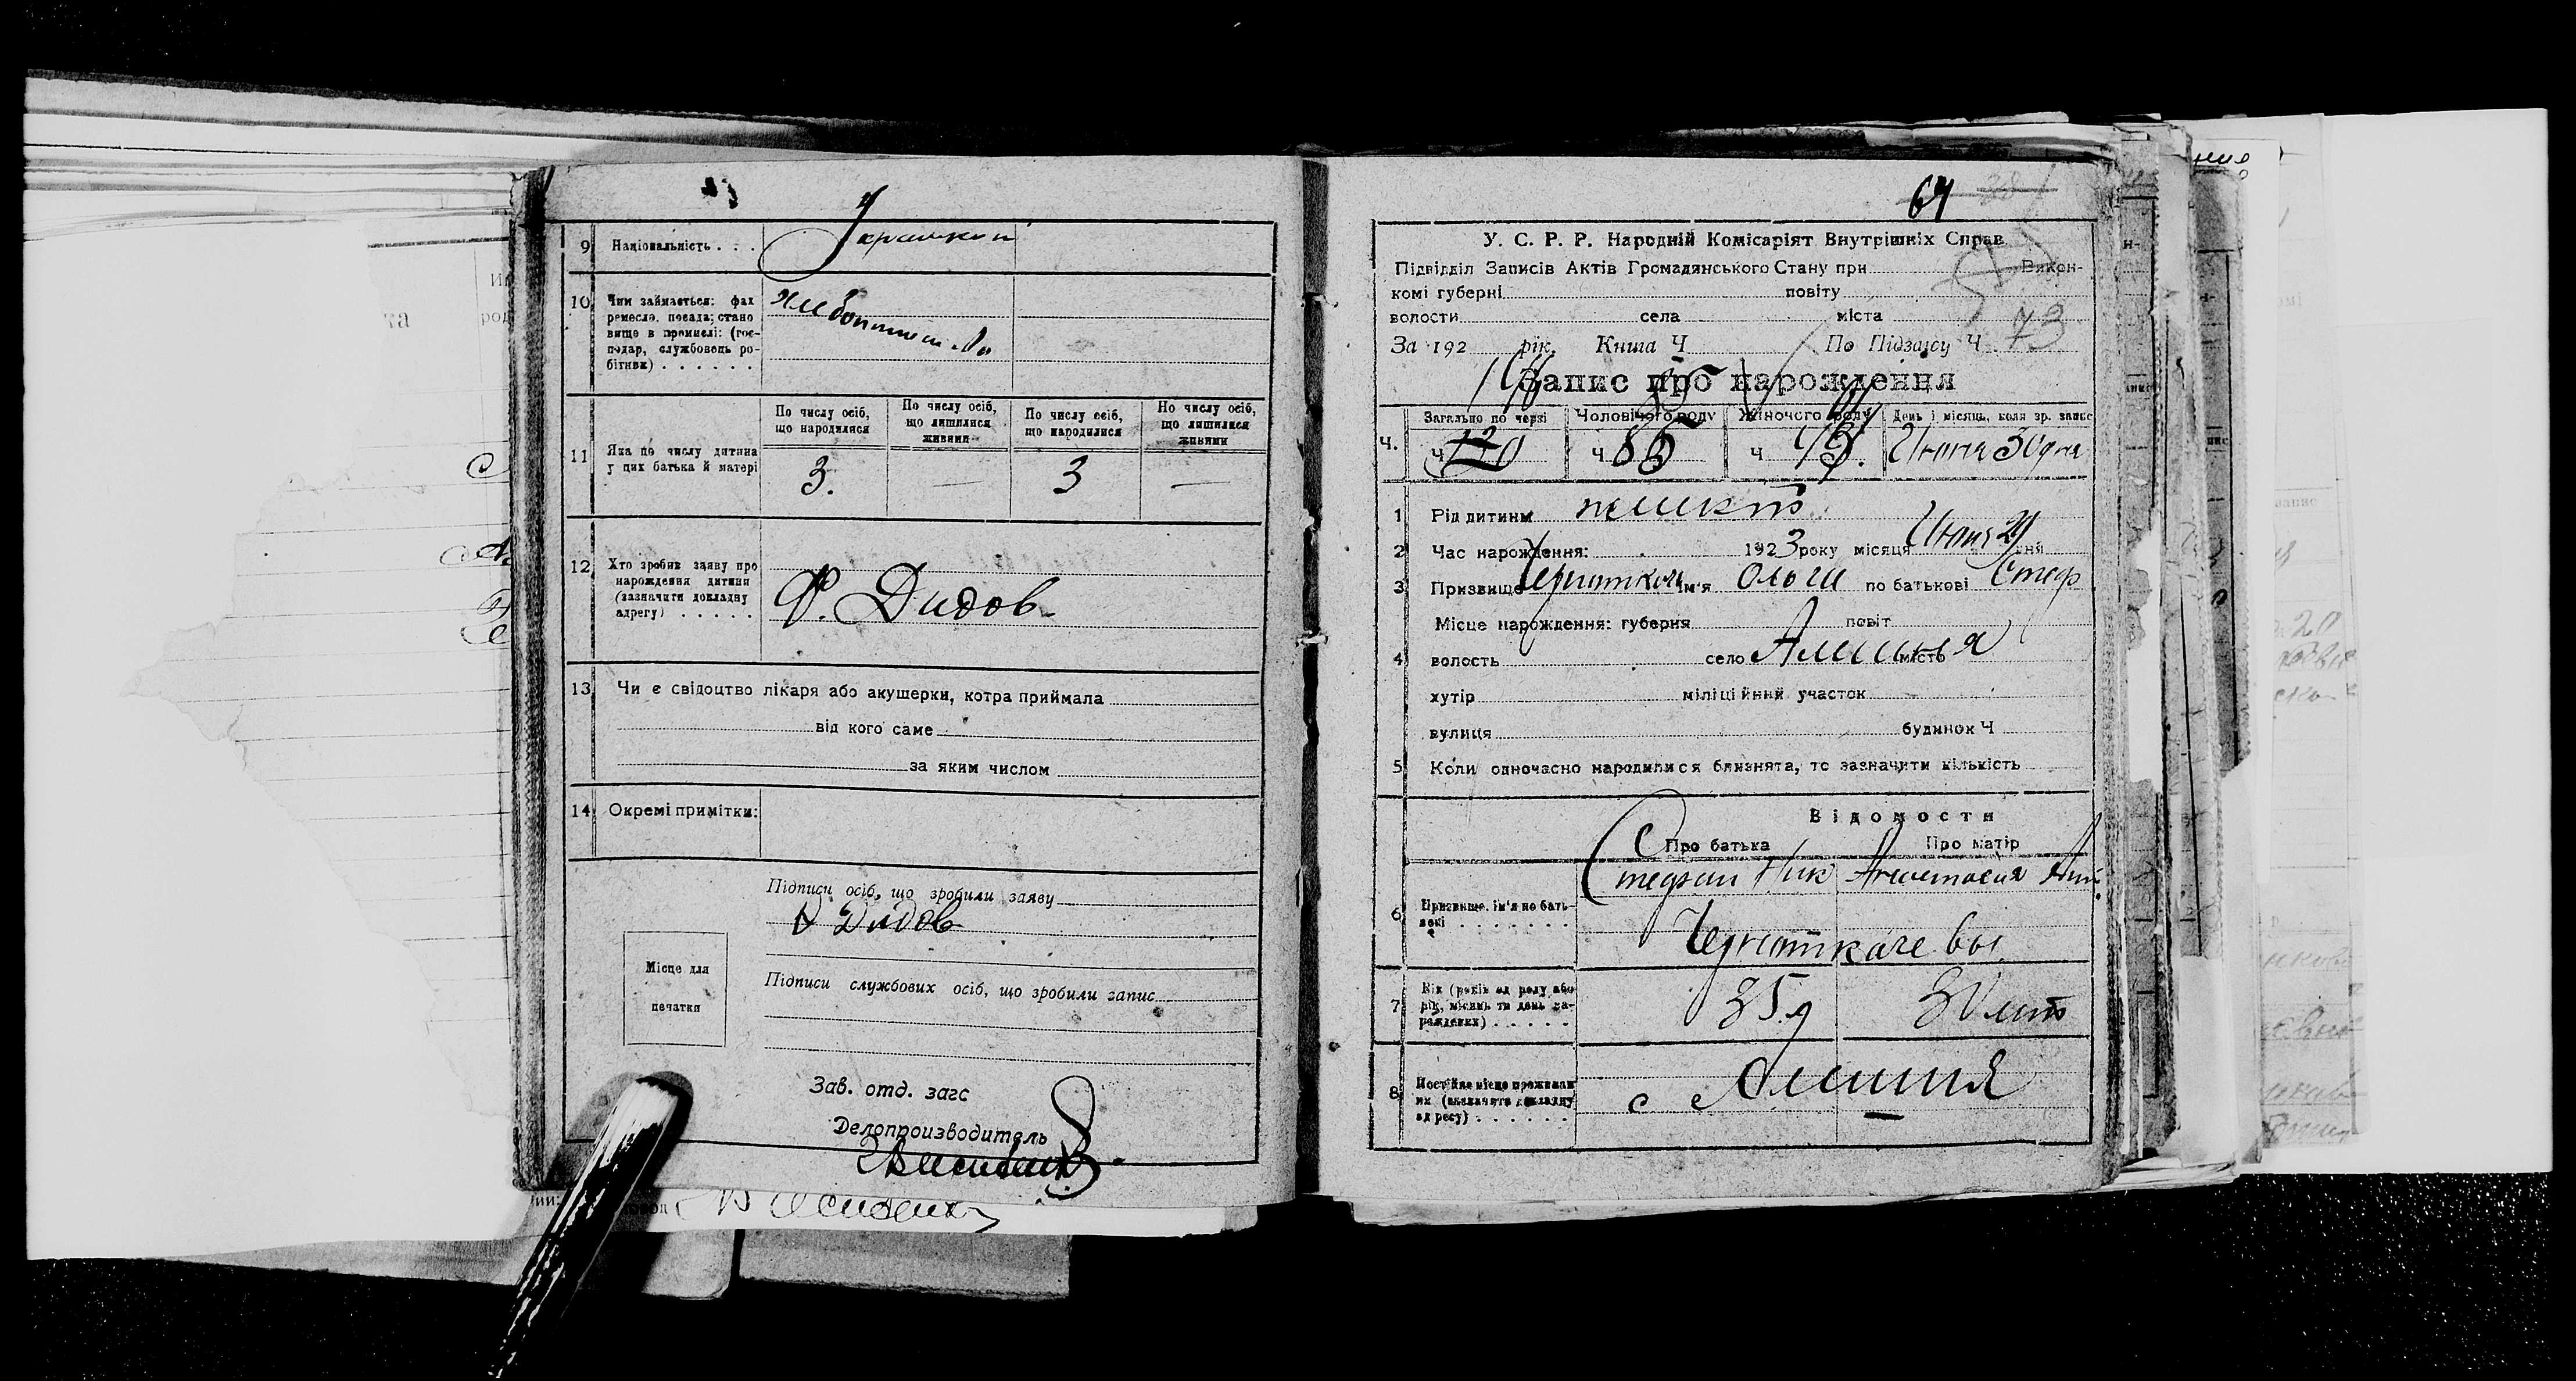 9 Національність . . .
Украинкой
10 Чим займається: фах
ремесло, посада; стано
вище в промислі: (гос-
подар, службовець ро-
бітник) . . . . . .
11 Яка по числу дитина
у цих батька й матері
По числу осіб,
що народилися
По числу осіб,
що лишилися
живими
По числу осіб,
що народилися
Но числу осіб,
що лишилися
живими
3. — 3 —
12 Хто зробив заяву про
нарождення дитини
(зазначити докладну
адресу) . . . . .
Ф. Дидов
13 Чи є свідоцтво лікаря або акушерки, котра приймала
від кого саме
за яким числом
14 Окремі примітки:
Підписи осіб, що зробили заяву
Дидов
Місце для
печатки
Підписи службових осіб, що зробили запис
Зав. отд. загс
Делопроизводитель
64
У. С. Р. Р. Народній Комісаріят Внутрішніх Справ
Підвідділ Записів Актів Громадянського Стану при Викон-
комі губерні повіту
волости села міста
За 192 рік. Книга Ч По Підзапсу Ч 73
Запис про нарождення
Загально по черзі Чоловічого роду Жіночого роду День і місяць, коли зр. запис
Ч. Ч Ч 85 Ч Июня 30 дня
1 Рід дитини женск
2 Час нарождення: 1923 року місяця Июня 29 дня
3 Призвище ім'я Ольги по батькові Стеф
Місце нарождення: губерня повіт
4 волость село Алешня місто
хутір міліційний участок
вулиця будинок Ч
5 Коли одночасно народилися близнята, то зазначити кількість
Відомости
Про батька Про матір
6 Призвище, ім'я по бать-
кові . . . . . . .
Стефан Ник Анастасия Ант
7 Вік (років од роду або
рік, місяць та день на-
рождення) . . . . .
35 л 30 лет
8 Постійне місце проживан
ня (зазначити докладну
адресу) . . . . . .
с Алешня